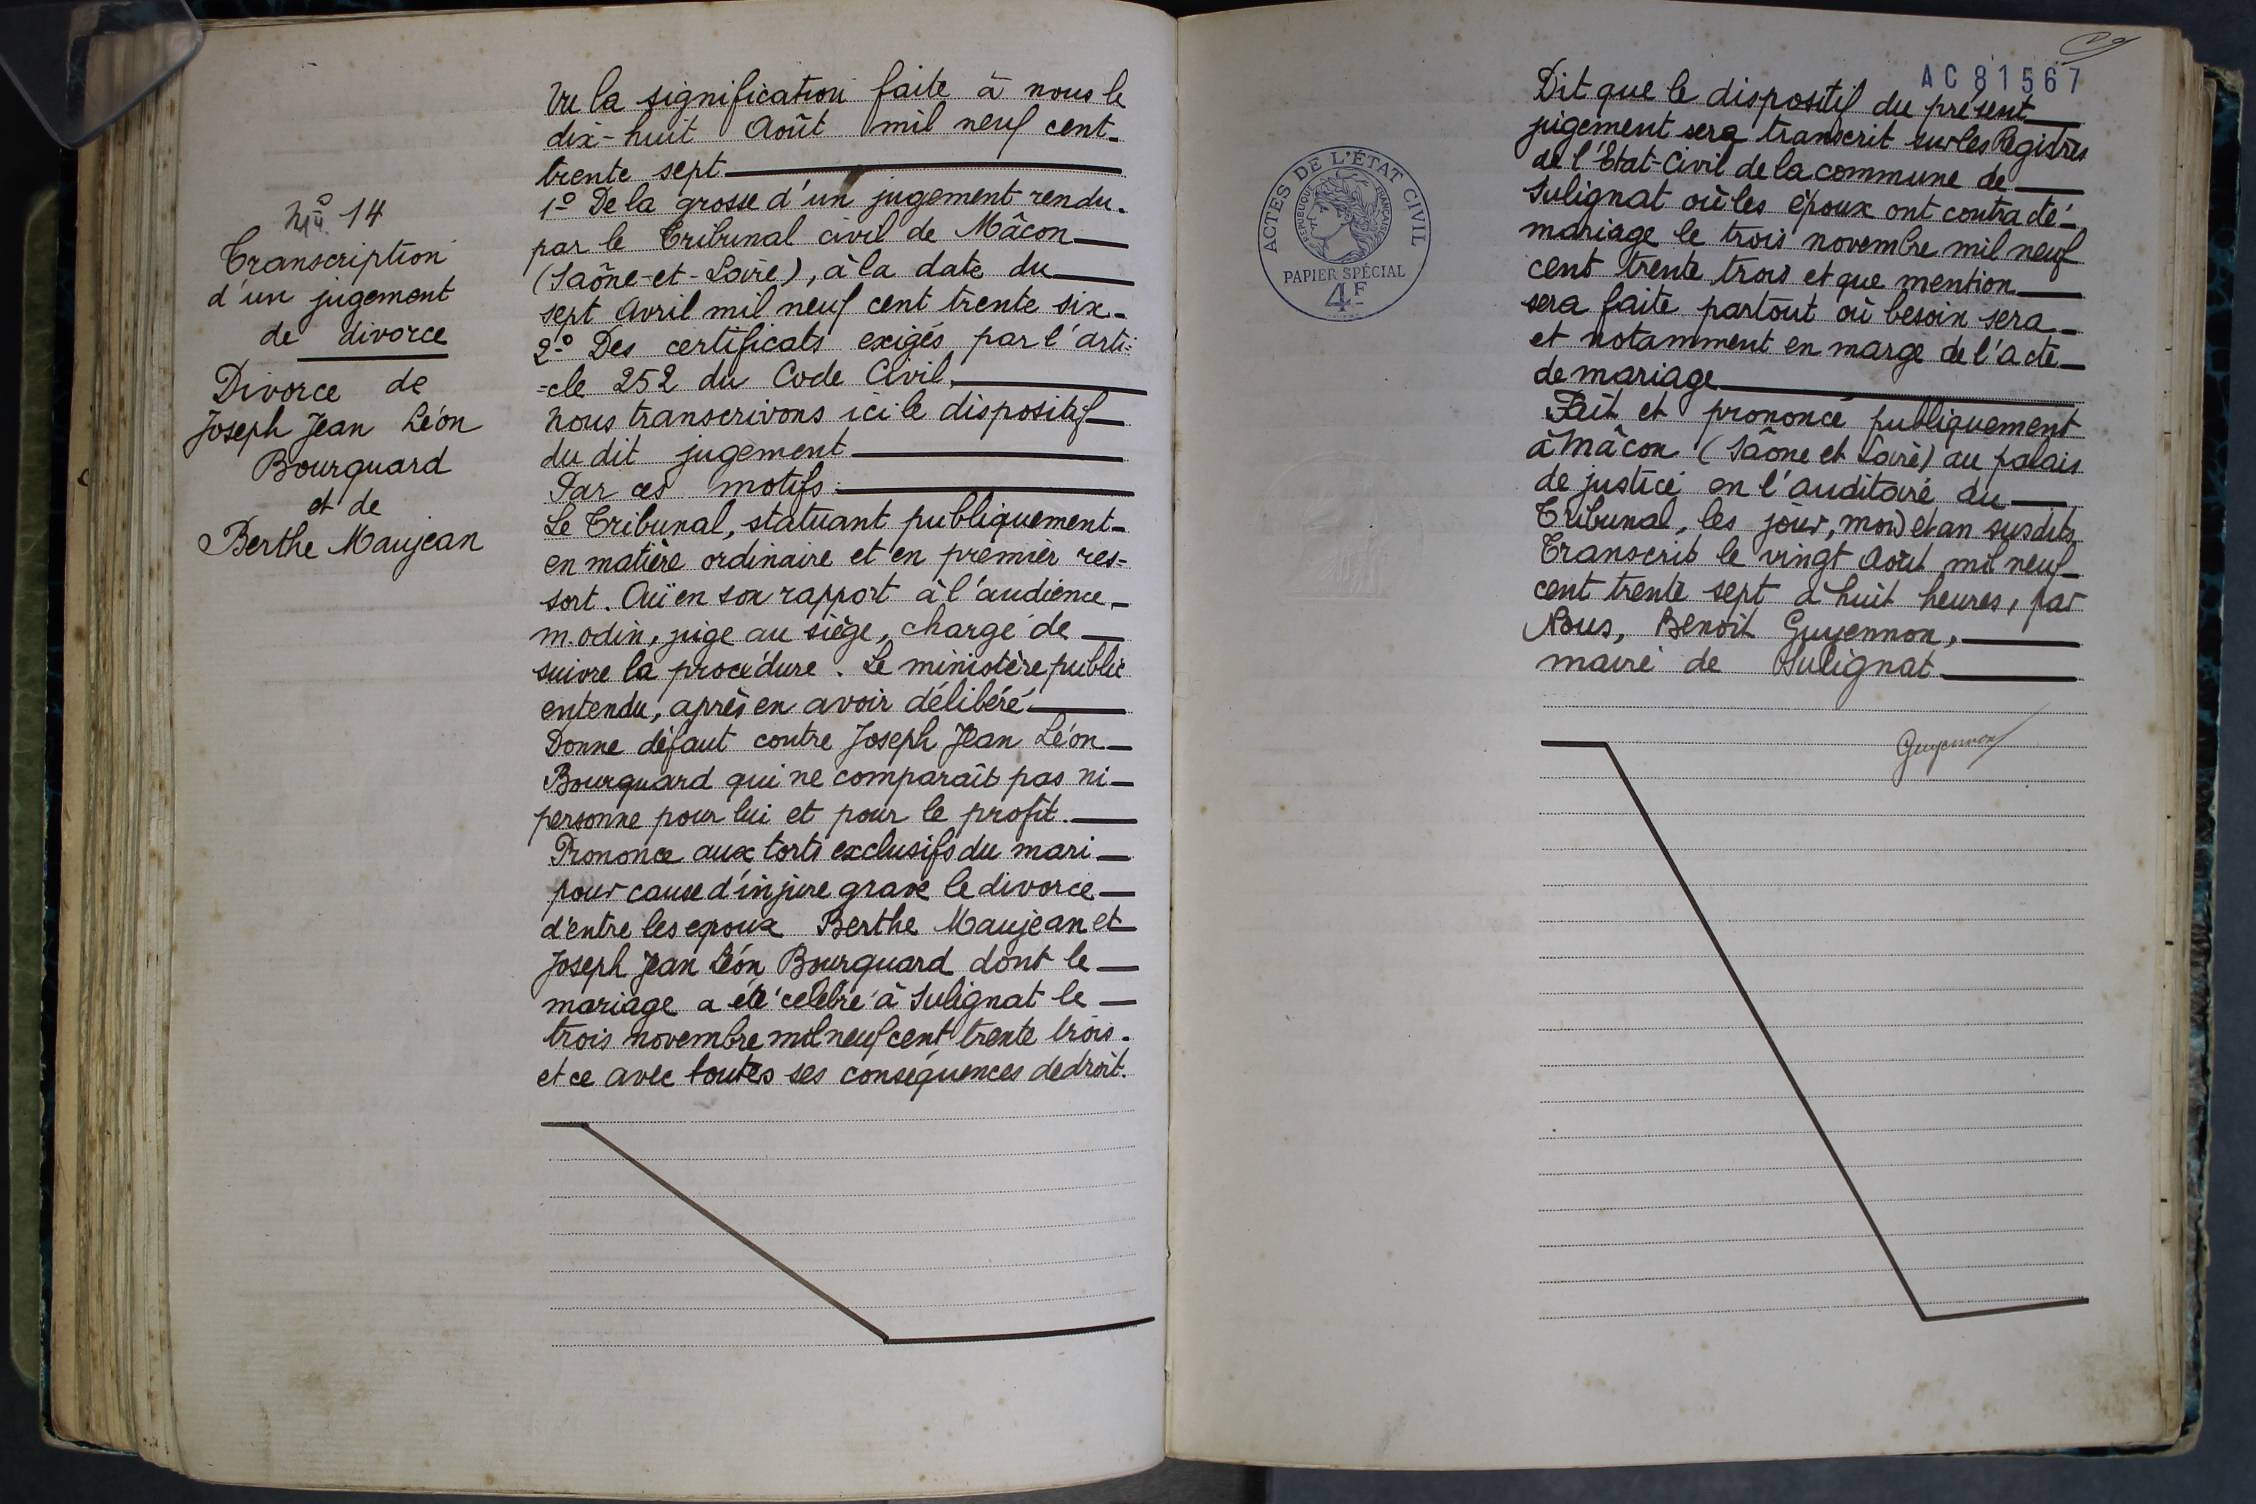 N° 14
Transcription
d'un jugement
de divorce
Divorce de
Joseph Jean Léon
Bourquard
et de
Berthe Maujean
Vu la signification faite à nous le
dix-huit Août mil neuf cent
trente sept
1° De la grosse d'un jugement rendu
par le Tribunal civil de Mâcon
(Saône-et-Loire), à la date du
sept Avril mil neuf cent trente six
2° Des certificats exigés par l'arti=
=cle 252 du Code Civil,
Nous transcrivons ici le dispositif
du dit jugement
Par ces motifs
Le Tribunal, statuant publiquement
en matière ordinaire et en premier res=
sort. Ouï en son rapport à l'audience
m. odin, juge au siège, chargé de
suivre la procédure. Le ministère public
entendu, après en avoir délibéré
Donne défaut contre Joseph Jean Léon
Bourquard qui ne comparaît pas ni
personne pour lui et pour le profit.
Prononce aux torts exclusifs du mari
pour cause d'injure grave le divorce
d'entre les epoux Berthe Maujean et
Joseph Jean Léon Bourquard dont le
mariage a été célébré à Sulignat le
trois novembre mil neuf cent trente trois.
et ce avec toutes ses conséquences de droit.
ACTES DE L'ÉTAT CIVIL
RÉPUBLIQUE FRANÇAISE
PAPIER SPÉCIAL
4F
AC 81567
Dit que le dispositif du présent
jugement sera transcrit sur les Registres
de l'Etat-Civil de la commune de
Sulignat où les époux ont contracté
mariage le trois novembre mil neuf
cent trente trois et que mention
sera faite partout où besoin sera
et notamment en marge de l'acte
de mariage
Fait et prononcé publiquement
à Mâcon (Saône et Loire) au palais
de justice en l'auditoire du
Tribunal, les jour, mois et an susdits
Transcrit le vingt Août mil neuf
cent trente sept à huit heures, par
Nous, Benoit Guyennon,
maire de Sulignat
Guyennon